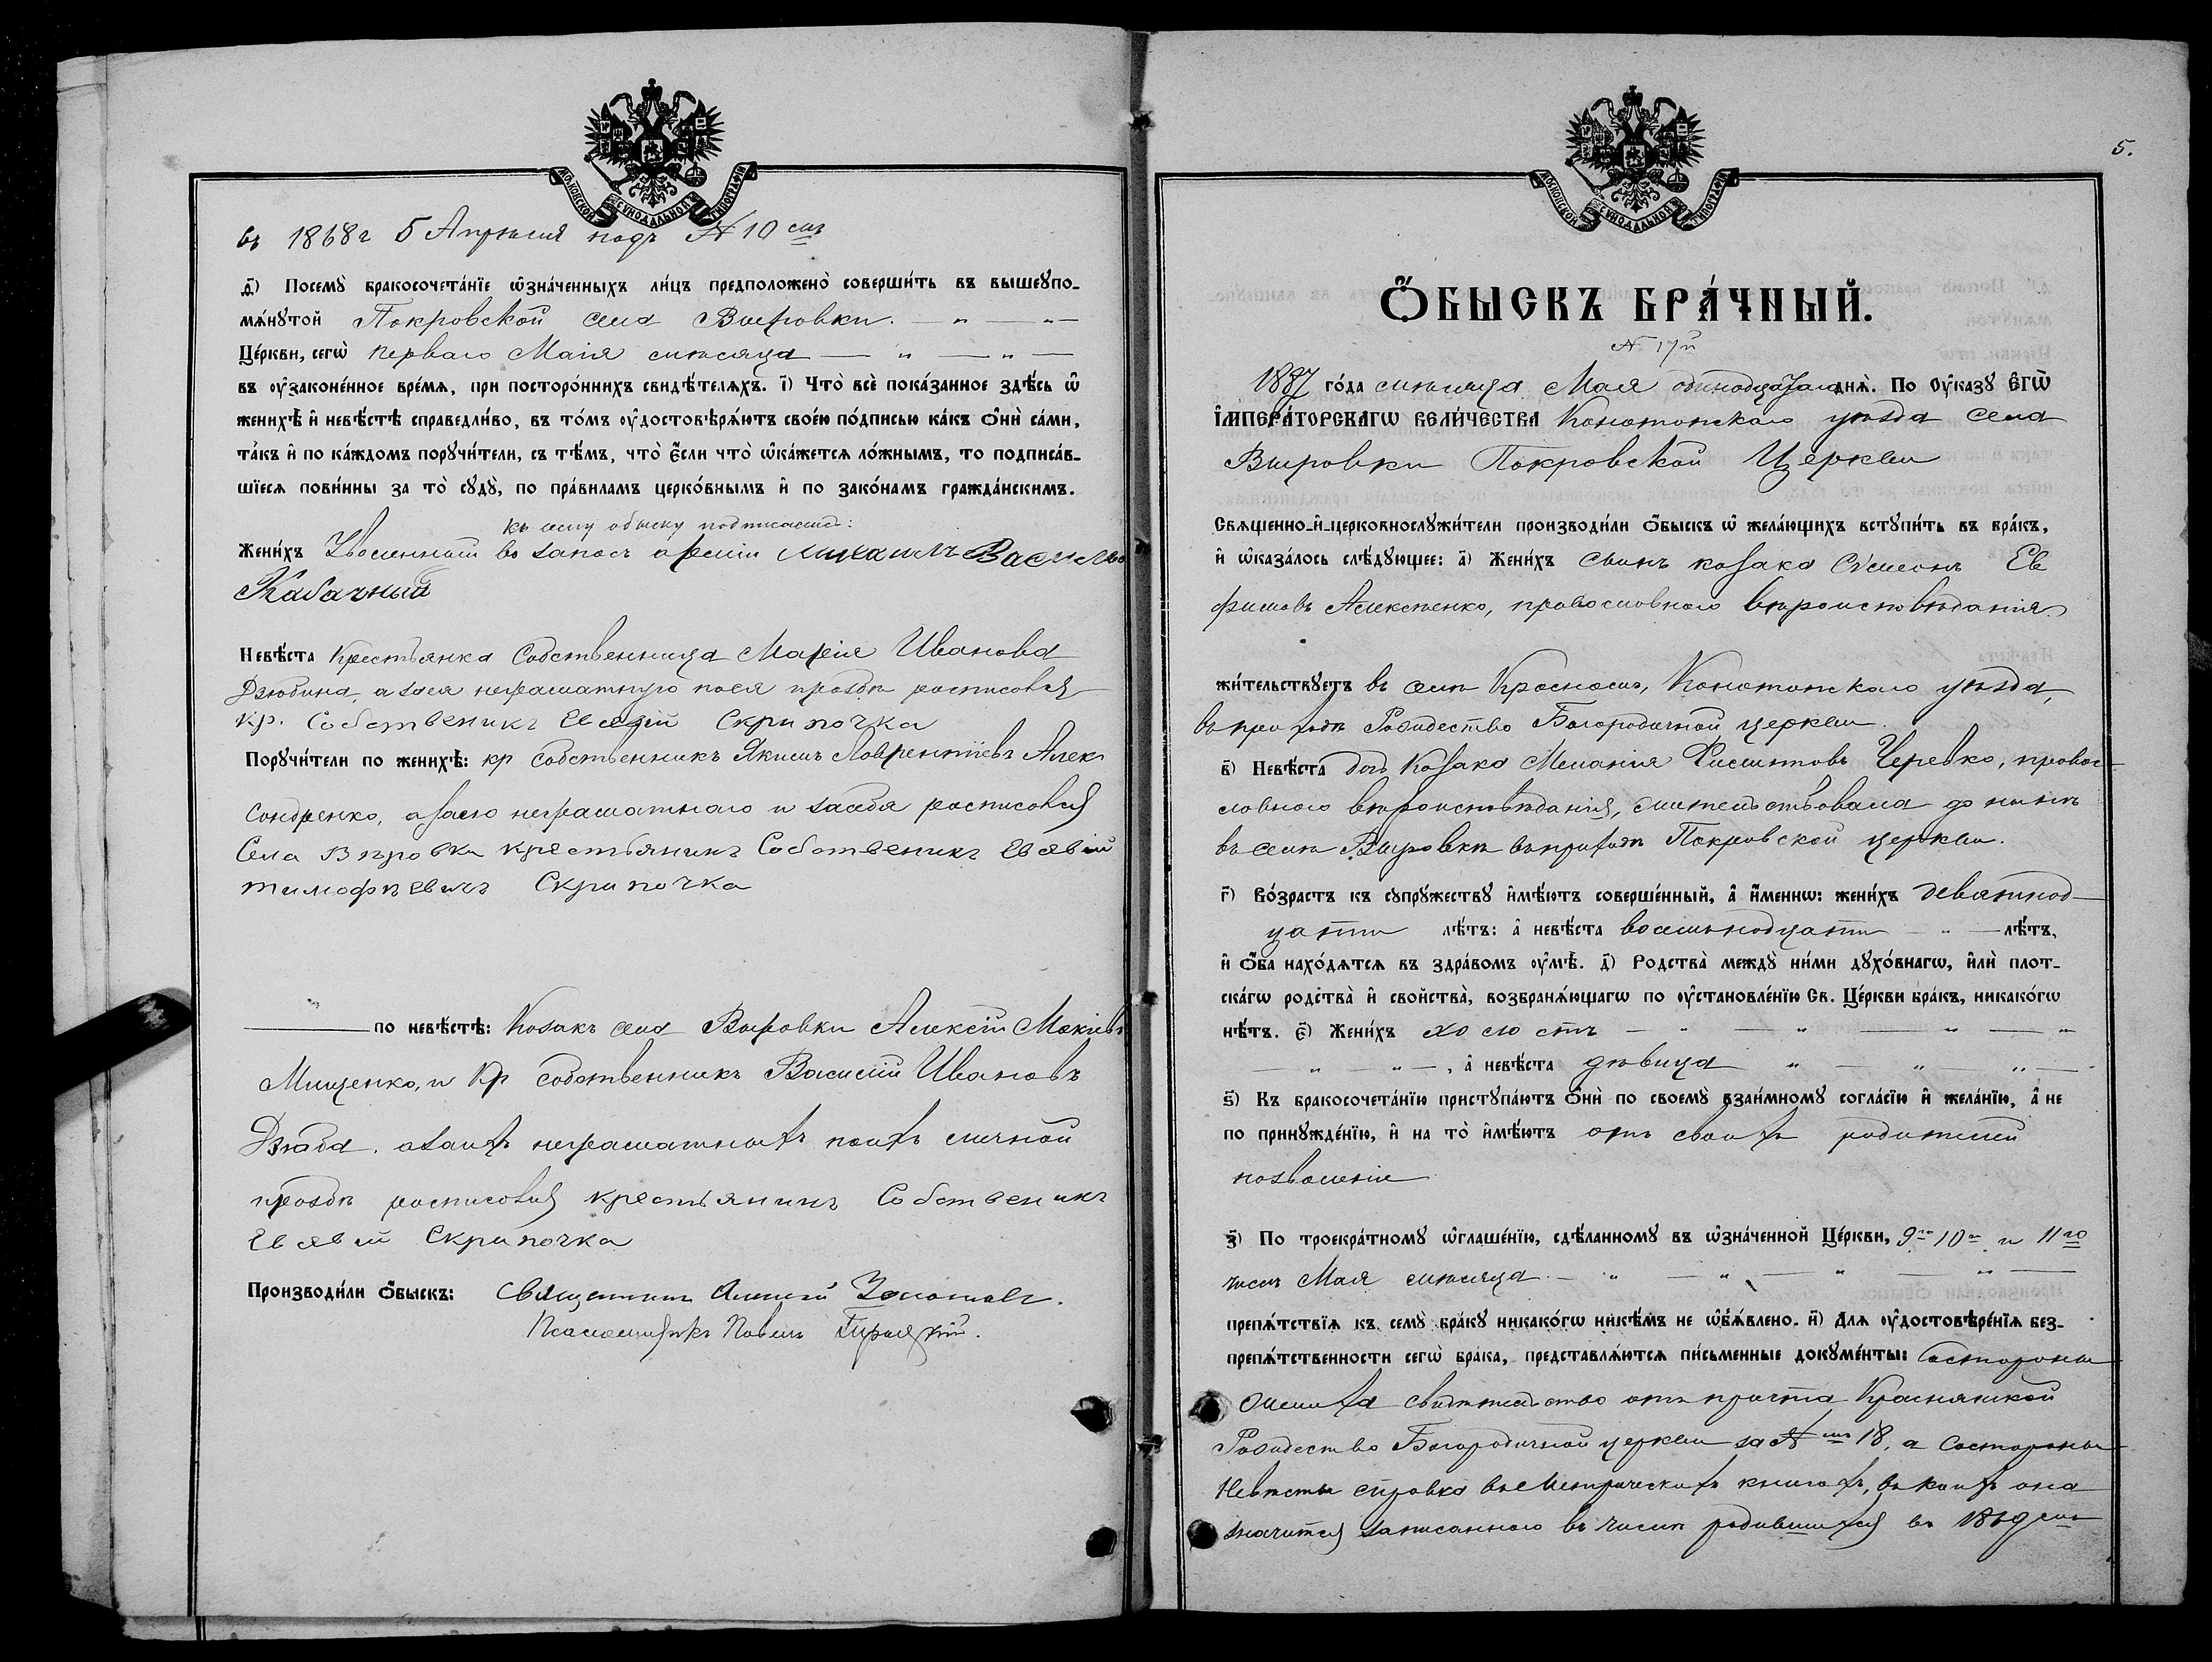 МОСКОВСКОЙ СѴНОДАЛЬНОЙ ТИПОГРАФІИ
въ 1868 г 5 Апрѣля подъ № 10 емъ
ѳ҃) Посемꙋ̀ бракосочета́нїе ѡ҆зна́ченныхъ ли́цъ предположено̀ соверши́ть въ вышеꙋпо-
мѧ́нꙋтой Покровской села Выровки. — „ — „ —
Це́ркви, сегѡ̀ перваго Маія мѣсяца — „ — „ —
въ ᲂу҆законе́нное вре́мѧ, при посторо́ннихъ свидѣ́телѧхъ. і҃) Что̀ всѐ пока́занное здѣ́сь ѡ҆
женихѣ̀ и҆ невѣ́стѣ справедли́во, въ то́мъ ᲂу҆достовѣрѧ́ютъ свое́ю по́дписью ка́къ ѻ҆нѝ са́ми,
та́къ и҆ по ка́ждомъ порꙋчи́тели, съ тѣ́мъ, что̀ є҆́сли что̀ ѡ҆ка́жетсѧ ло́жнымъ, то подписа́в-
шїесѧ пови́нны за то̀ сꙋдꙋ̀, по пра́виламъ церко́внымъ и҆ по зако́намъ гражда́нскимъ.
къ сему обыску подписались:
Жени́хъ Уволенный въ запасъ арміи Михаилъ Василъевъ
Кабачный
Невѣ́ста Крестьянка Собственница Марія Иванова
Дзюбина, а за ея неграмотную по ея прозьбѣ росписовался
кр. Собственикъ Евсевій Скрипочка
Порꙋчи́тели по женихѣ̀: кр собственникъ Якимъ Лаврентіевъ Алек-
сондренко, а за его неграмотнаго и засебя росписовался
Села Выровки крестьянинъ Собственикъ Евсевій
тимофѣевичъ Скрипочка
— по невѣ́стѣ: Козакъ села Выровки Алексій Мокіевъ
Мищенко, и Кр собственникъ Василій Ивановъ
Дзюба. а заихъ неграмотныхъ поихъ личной
прозбѣ росписовался крестьянинъ Собственикъ
Евсевій Скрипочка
Производи́ли ѻ҆́быскъ: Священникъ Алексій
Псаломщикъ Павелъ
5.
МОСКОВСКОЙ СѴНОДАЛЬНОЙ ТИПОГРАФІИ
Ѻ҆́БЫСКЪ БРА́ЧНЫЙ.
№ 17й
1887 го́да мѣсяца Мая одинодцатаго днѧ̀. По ᲂу҆ка́зꙋ Є҆гѡ̀
И҆МПЕРА́ТОРСКАГѠ ВЕЛИ́ЧЕСТВА Конотопскаго уѣзда села
Выровки Покровской Церкви
Свѧще́нно-и҆-церковнослꙋжи́тели производи́ли ѻ҆́быскъ ѡ҆ жела́ющихъ встꙋпи́ть въ бра́къ,
и҆ ѡ҆каза́лось слѣ́дꙋющее: а҃) Жени́хъ сынъ козака Сѵмеонъ Ев
фимовъ Алексѣенко, провословного вѣроисповѣданія
жи́тельствꙋетъ въ селѣ Красномъ, Конотопскаго уѣзда,
въ приходѣ Рождество Богородичной церкви.
в҃) Невѣ́ста дочь Козака Меланія Филиптовъ Черевко, провос-
ловного вѣроисповѣданія, жительствовала до нынѣ
въ селѣ Выровкѣ въ приходѣ Покровской церкви.
г҃) Во́зрастъ къ сꙋпрꙋ́жествꙋ и҆мѣ́ютъ соверше́нный, а҆ и҆́меннѡ: жени́хъ девятнад-
цати лѣ́тъ: а҆ невѣ́ста восемьнадцати — „ — лѣ́тъ,
и҆ ѻ҆́ба нахо́дѧтсѧ въ здра́вомъ ᲂу҆мѣ̀. д҃) Родства̀ междꙋ̀ ни́ми дꙋхо́внагѡ, и҆лѝ плот-
ска́гѡ родства̀ и҆ сво́йства, возбранѧ́ющагѡ по ᲂу҆становле́нїю Св. Це́ркви бра́къ, никако́гѡ
нѣ́тъ. є҃) Жени́хъ холостъ — „ — „ — „ — „
„ — „ —, а҆ невѣ́ста дѣвица „ — „ — „ —
ѕ҃) Къ бракосочета́нїю пристꙋпа́ютъ ѻ҆нѝ по своемꙋ̀ взаи́мномꙋ согла́сїю и҆ жела́нїю, а҆ не
по принꙋжде́нїю, и҆ на то̀ и҆мѣ́ютъ отъ своихъ родителей
позволеніе
з҃) По троекра́тномꙋ ѡ҆глаше́нїю, сдѣ́ланномꙋ въ ѡ҆зна́ченной Це́ркви, 9го 10го и 11го
числъ Мая мѣсяца. — „ — „ — „ — „ —
препѧ́тствїѧ къ семꙋ̀ бра́кꙋ никако́гѡ никѣ́мъ не ѡ҆б̾ѧ́влено. и҃) Длѧ ᲂу҆достовѣре́нїѧ без-
препѧ́тственности сегѡ̀ бра́ка, представлѧ́ютсѧ пи́сьменные докꙋме́нты: Состороны
жениха свидѣтельство отъ причта Краснянской
Рождество Богородичной церкви за № 18, а Состороны
Невѣсты справка въ Метрическихъ книгахъ, въ коихъ она
значится записанною въ числѣ родившихся въ 1869 емъ